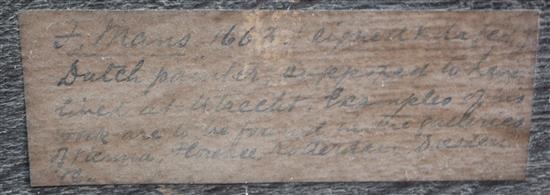 F. Mans, 1663? signed & dated
Dutch painter, supposed to have
lived at Utrecht. Examples of his
work are to be found in the galleries
of Vienna, Florence, Rotterdam, Dresden